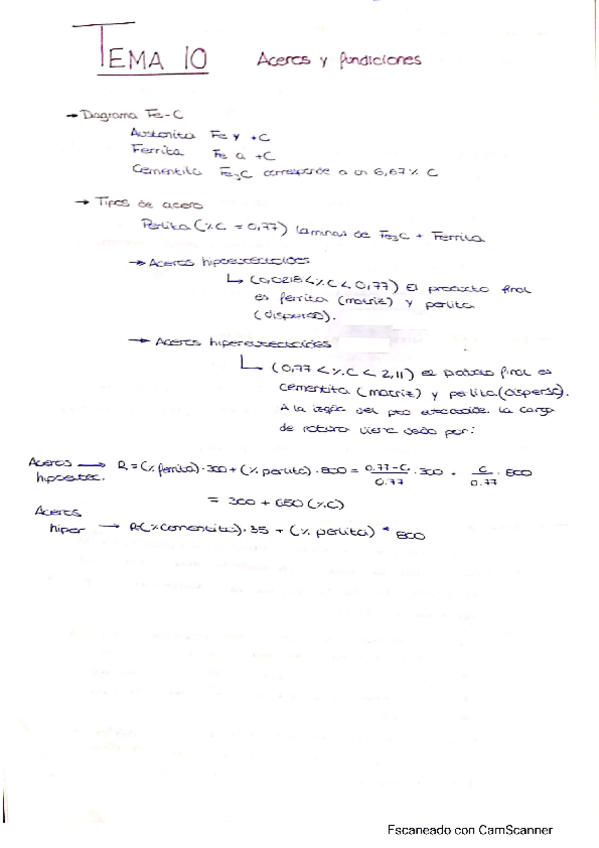 TEMA 10 Aceros y fundiciones
→ Diagrama Fe-C
Austenita Fe γ + C
Ferrita Fe α + C
Cementita Fe3C corresponde a un 6,67% C
→ Tipos de acero
Perlita (%C = 0,77) laminas de Fe3C + Ferrita
→ Aceros hipoeutectoides
↳ (0,0218 < %C < 0,77) El producto final
es ferrita (matriz) y perlita
(dispersa).
→ Aceros hipereutectoides
↳ (0,77 < %C < 2,11) el producto final es
cementita (matriz) y perlita (dispersa).
A la izqda del pto eutectoide. la carga
de rotura viene dado por:
Aceros hipoeutec. → R = (% ferrita) · 300 + (% perlita) · 800 = 0.77-C/0.77 · 300 + C/0.77 · 800
= 300 + 650 (%C)
Aceros hiper → R(% cementita) · 35 + (% perlita) * 800
Escaneado con CamScanner